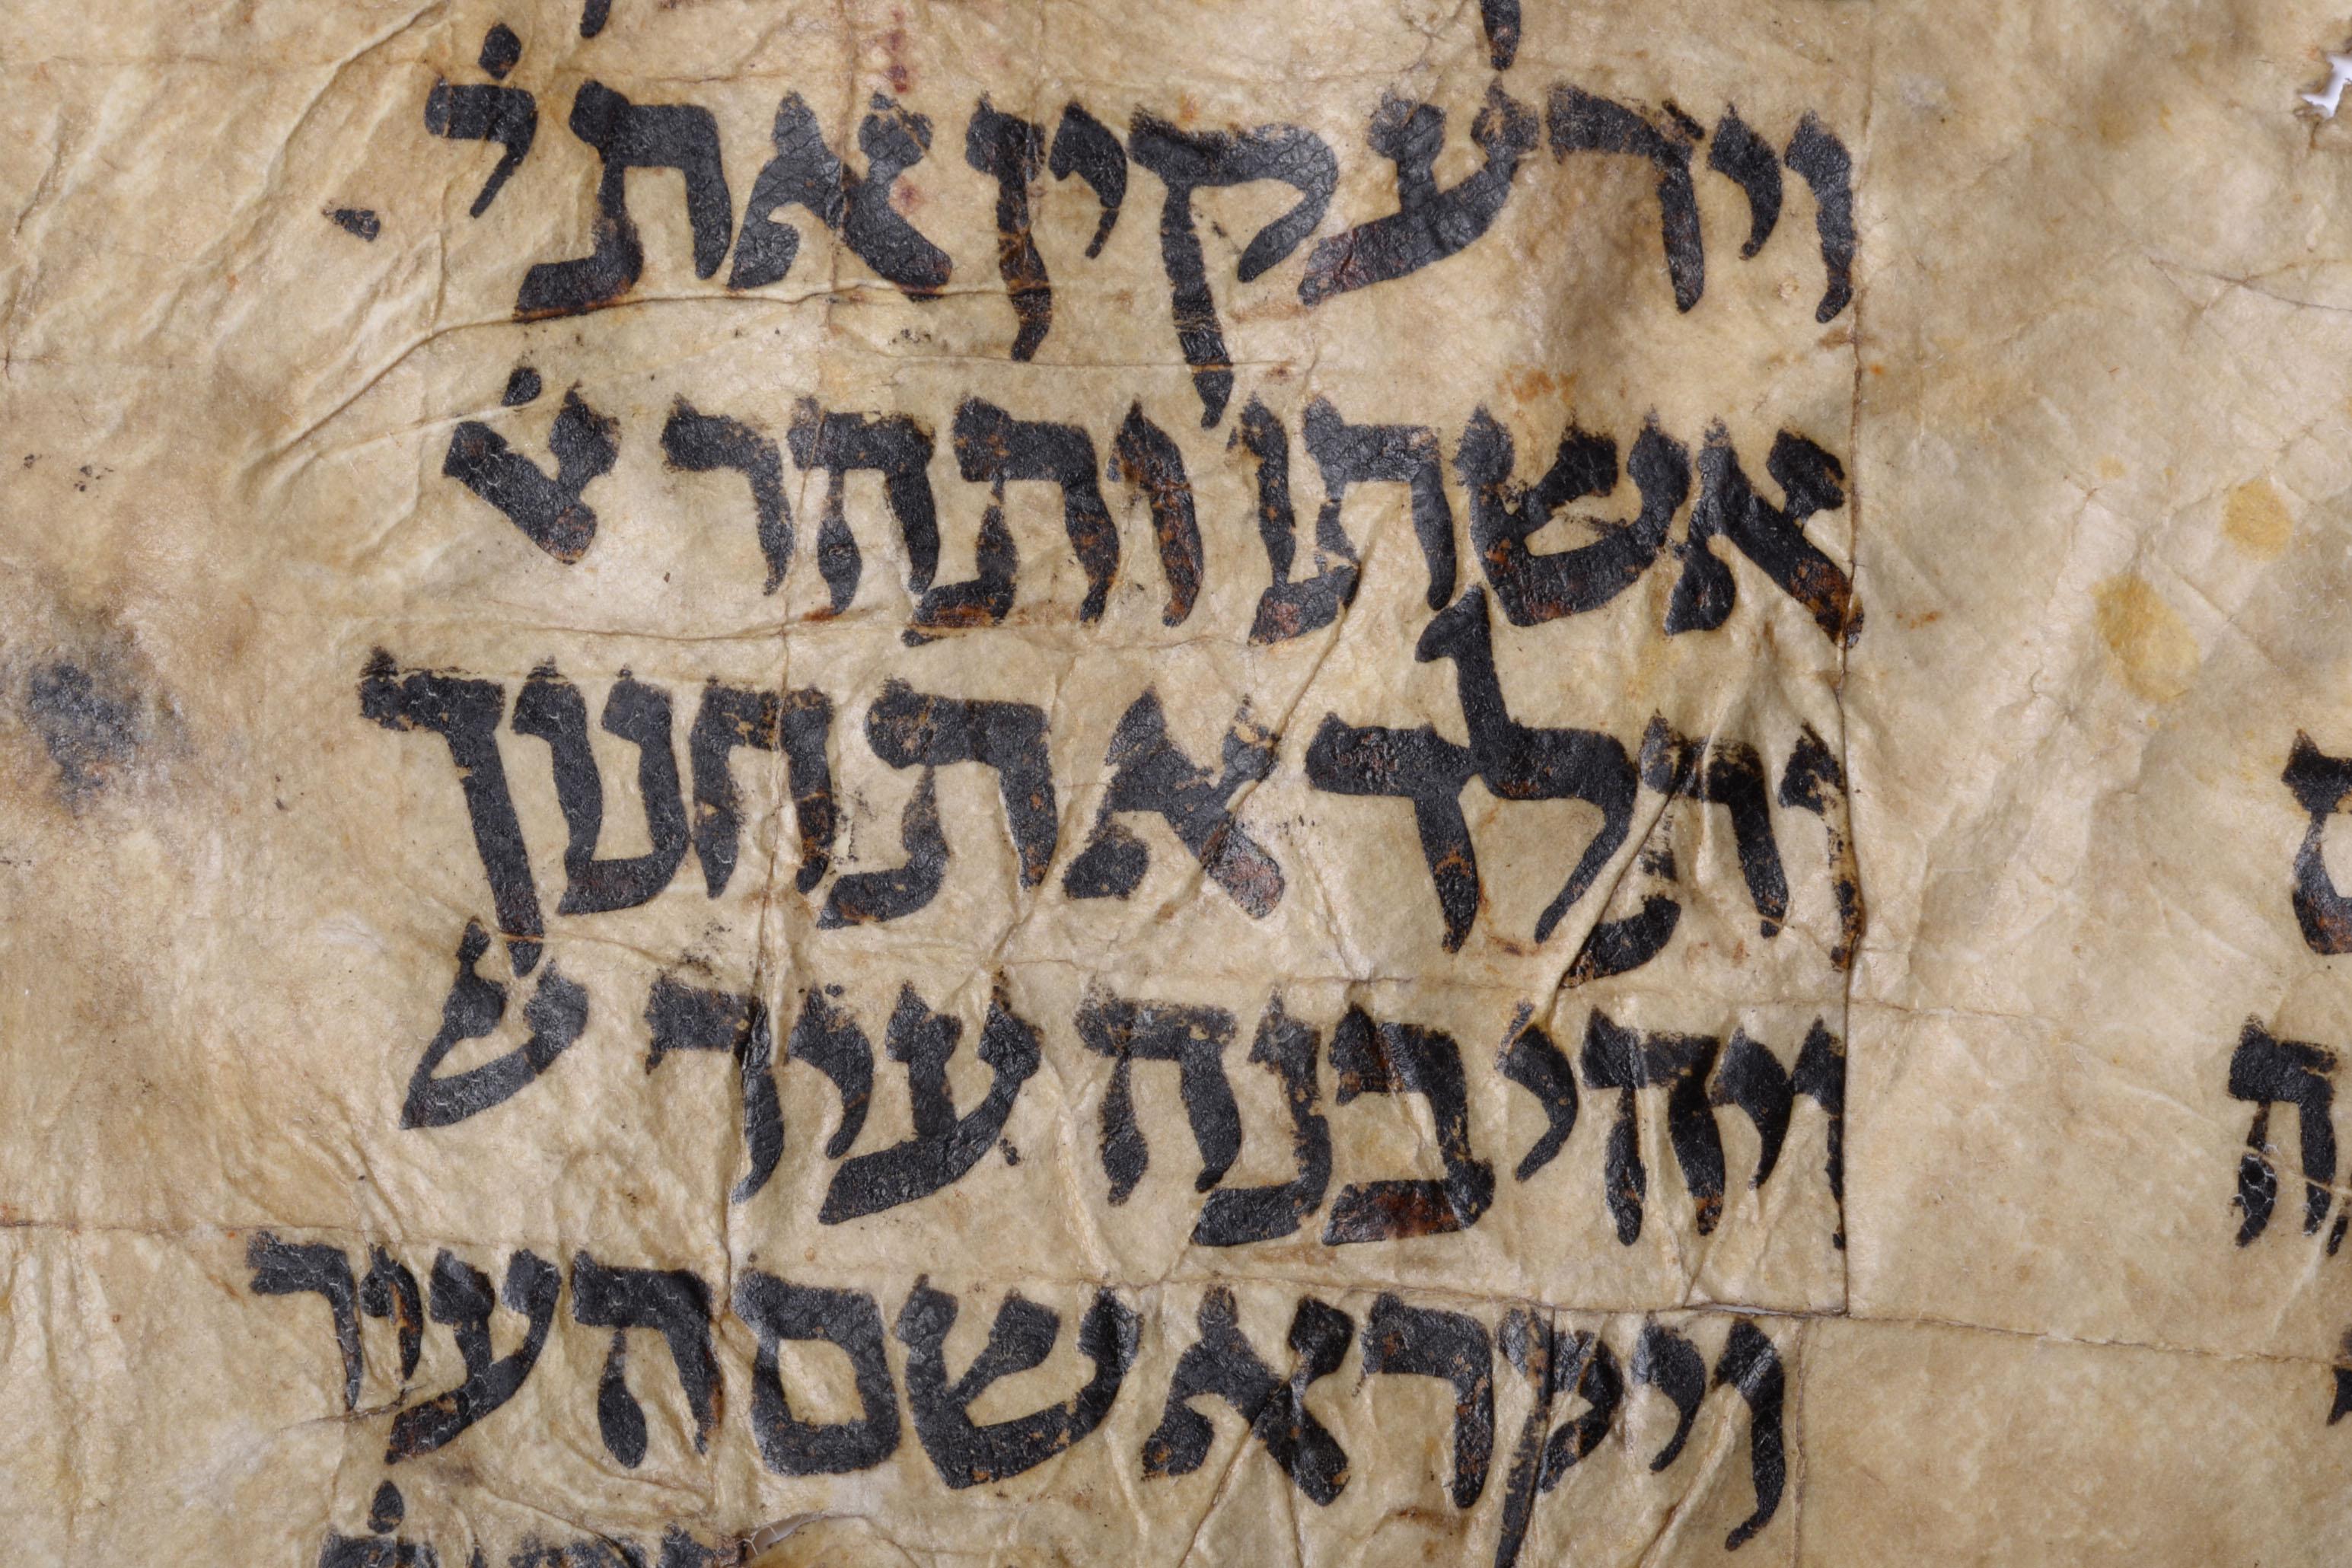 וידע קין את
אשתו ותהר
ותלד את חנוך
ויהי בנה עיר
ויקרא שם העיר